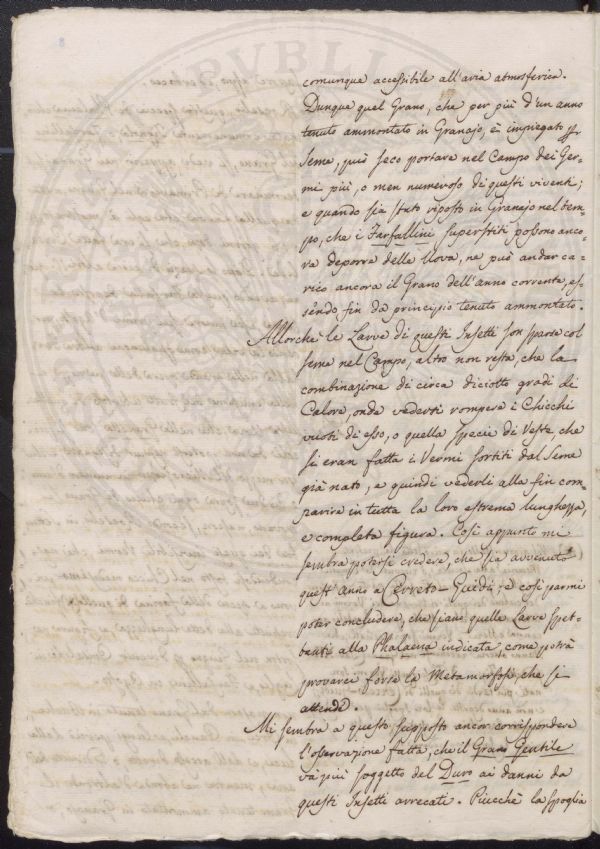 comunque accessibile all'aria atmosferica.
Dunque quel Grano, che per più d'un anno
tenuto ammontato in Granajo, è impiegato p
seme, può seco portare nel Campo dei Ger-
mi più, o men numeroso di questi viventi;
e quando sia stato riposto in Granajo nel tem-
po, che i Farfallini superstiti possono anco-
ra deporre delle Uova, ne può andar ca-
rico ancora il Grano dell'anno corrente, es-
sendo fin da principio tenuto ammontato.
Allorchè le Larve di questi Insetti son sparse col
seme nel Campo, altro non resta, che la
combinazione di circa diciotto gradi di
Calore, onde vederti rompere i Chicchi
vuoti di esso, o quella specie di Veste, che
si eran fatta i Vermi sortiti dal seme
già nato, e quindi vederli alla fin com
parire in tutta la loro estrema lunghezza,
e completa figura. Così appunto mi
sembra potersi credere, che sia avvenuto
quest'anno a Cerreto-Guidi; e così parmi
poter concludere, che siano quelle Larve spet-
tanti alla Phalaena indicata, come potrà
provarci forse la Metamorfosi, che si
attende.
Mi sembra a questo supposto ancor corrispondere
l'osservazione fatta, che il Grano Gentile
va più soggetto del Duro ai danni da
questi Insetti arrecati. Piucchè la spoglia